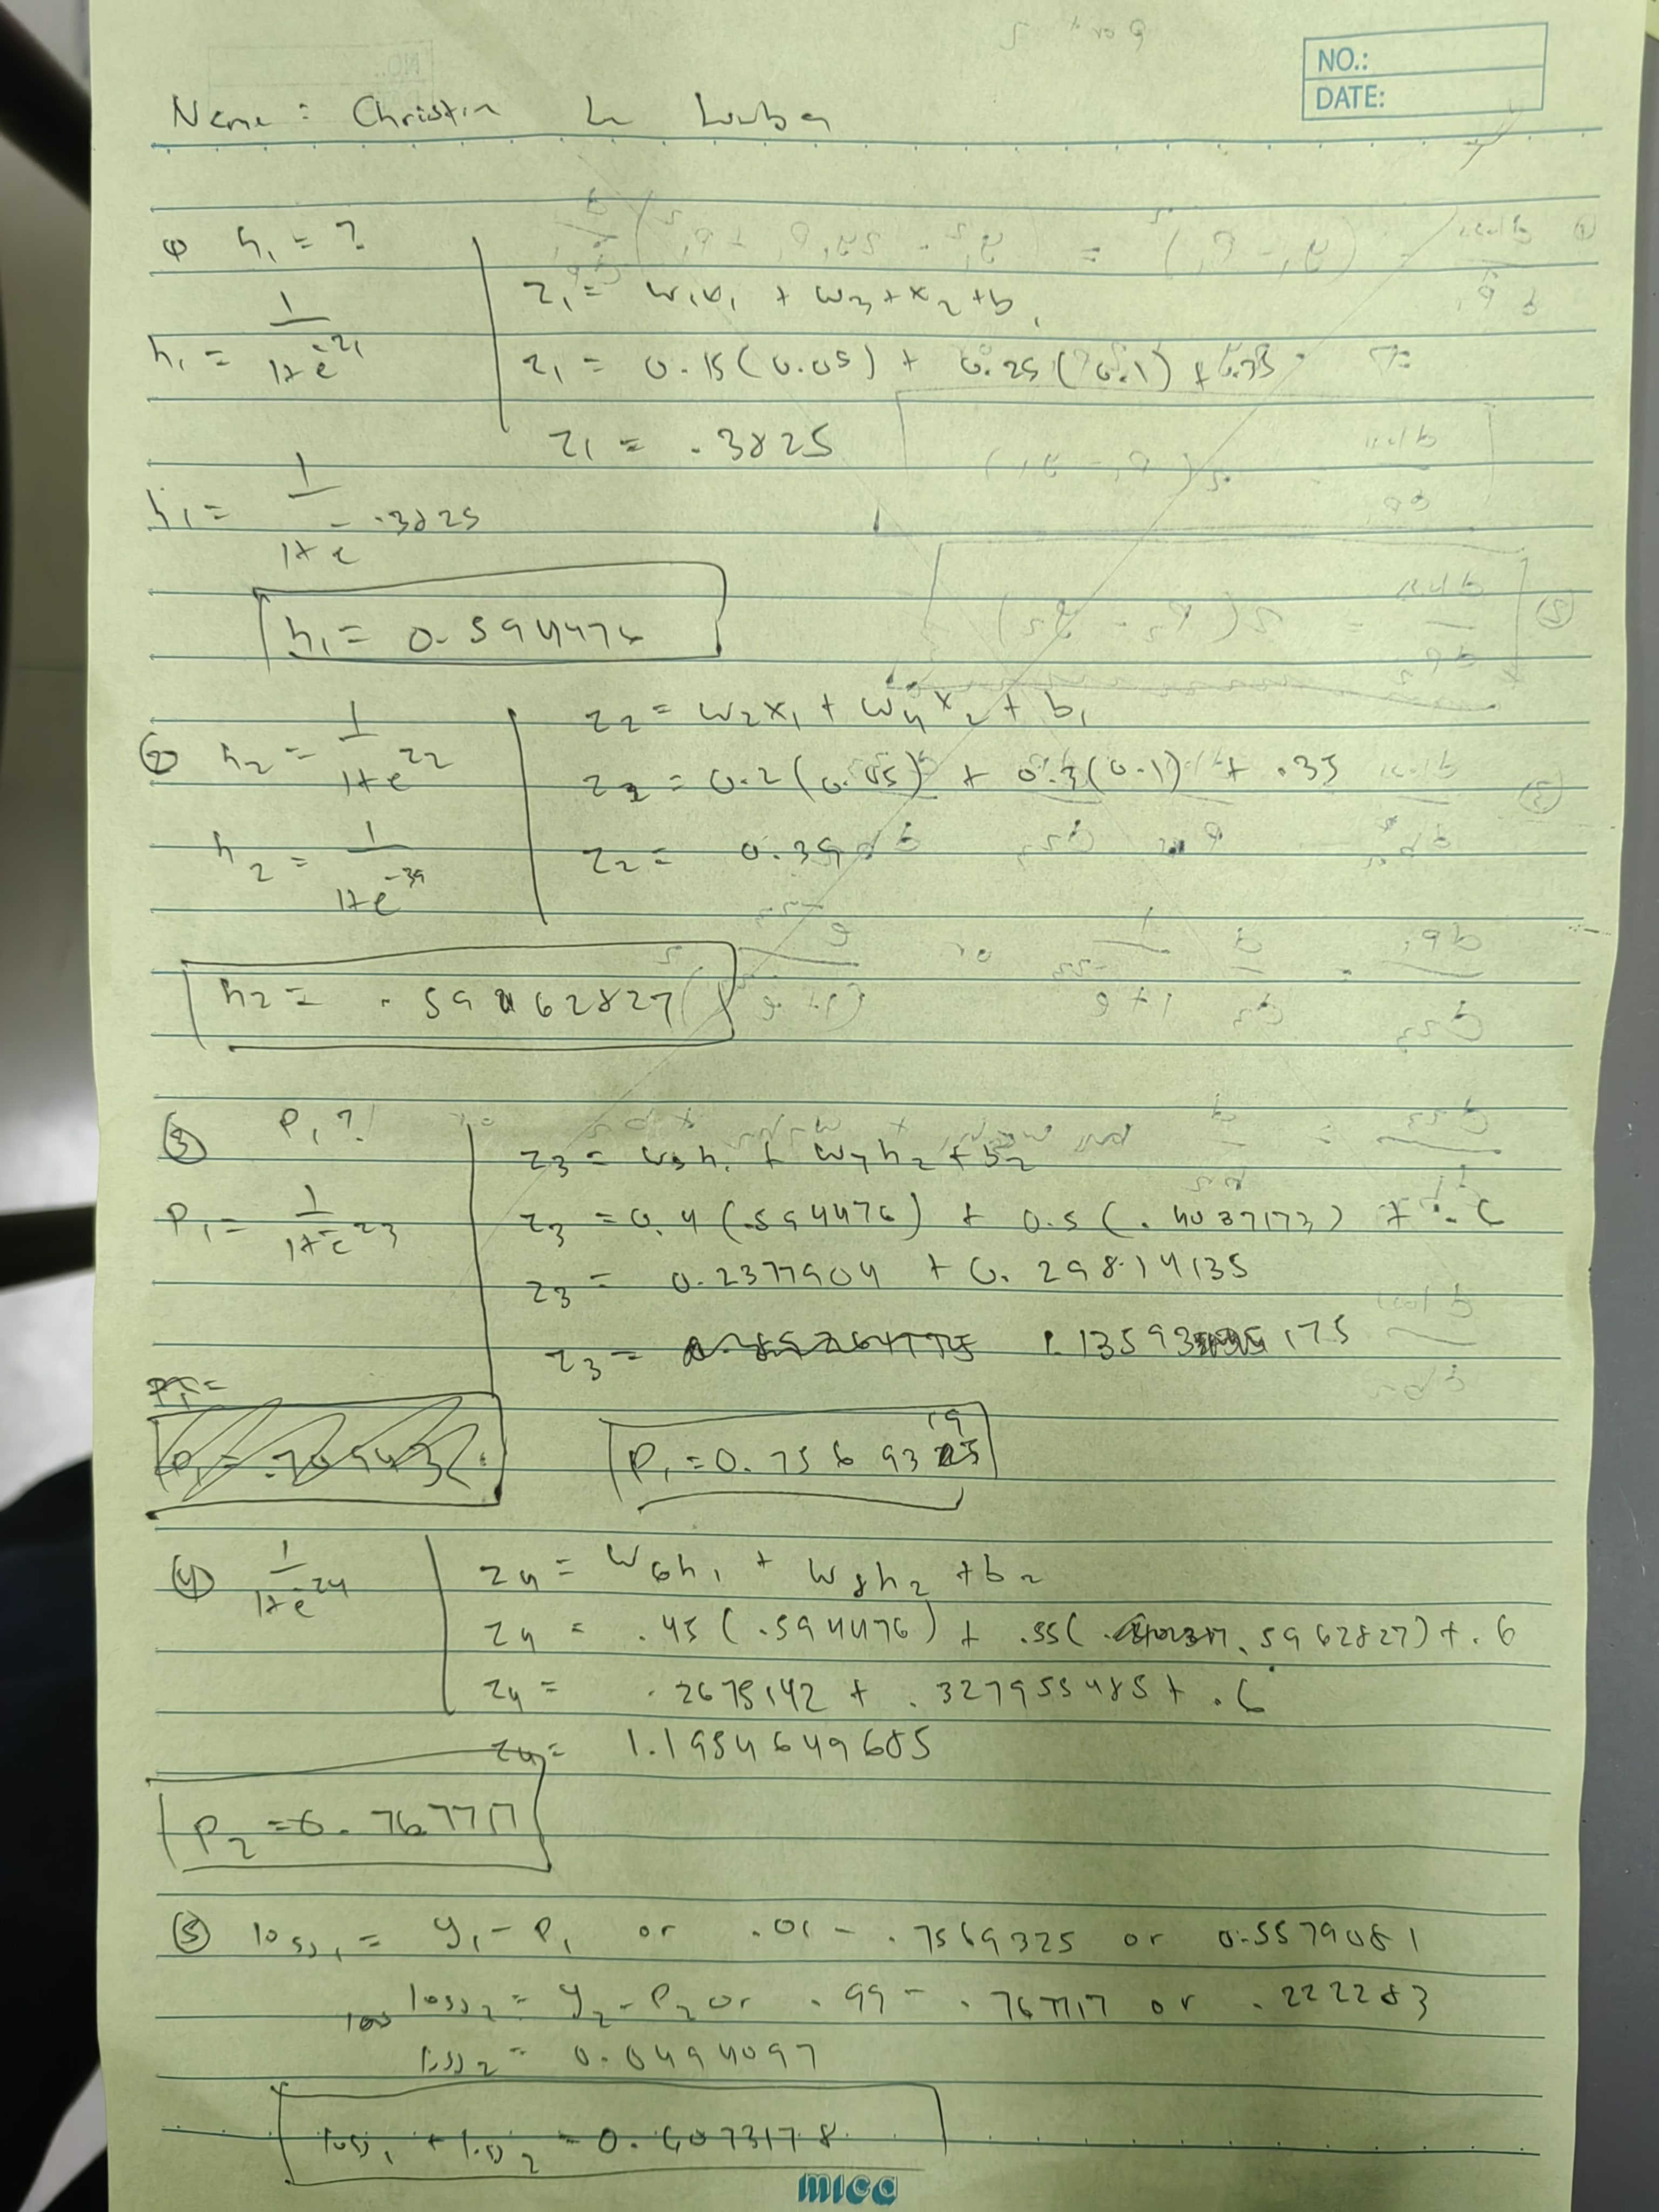 NO.:
DATE:
Name: Christin
① h₁ = ?
z₁ = w₁x₁ + w₃ + x₂ + b₁
h₁ = 1/(1+e^-z₁)
z₁ = 0.15(0.05) + 0.25(0.1) + 0.35
z₁ = .3825
h₁ = 1/(1+e^-.3825)
h₁ = 0.594476
z₂ = w₂x₁ + w₄x₂ + b₁
② h₂ = 1/(1+e^z2)
z₂ = 0.2(0.05) + 0.3(0.1) + .35
h₂ = 1/(1+e^-39)
z₂ = 0.39
h₂ = .5962827
③ P₁?
z₃ = w₅h₁ + w₇h₂ + b₂
P₁ = 1/(1+e^-z3)
z₃ = 0.4(.594476) + 0.5(.4037173) + .6
z₃ = 0.2377904 + 0.29814135
z₃ = 1.13593175
P₁ =
P₁ = 0.7569319
④ 1/(1+e^-z4)
z₄ = w₆h₁ + w₈h₂ + b₂
z₄ = .45(.594476) + .55(.5962827) + .6
z₄ = .2675142 + .327955485 + .6
z₄ = 1.1954649685
P₂ = 0.767717
⑤ loss₁ = y₁ - P₁ or .01 - .7569325 or 0.5579081
loss₂ = y₂ - P₂ or .99 - .767717 or .222283
loss₂ = 0.0494097
loss₁ + loss₂ = 0.6073178
mica